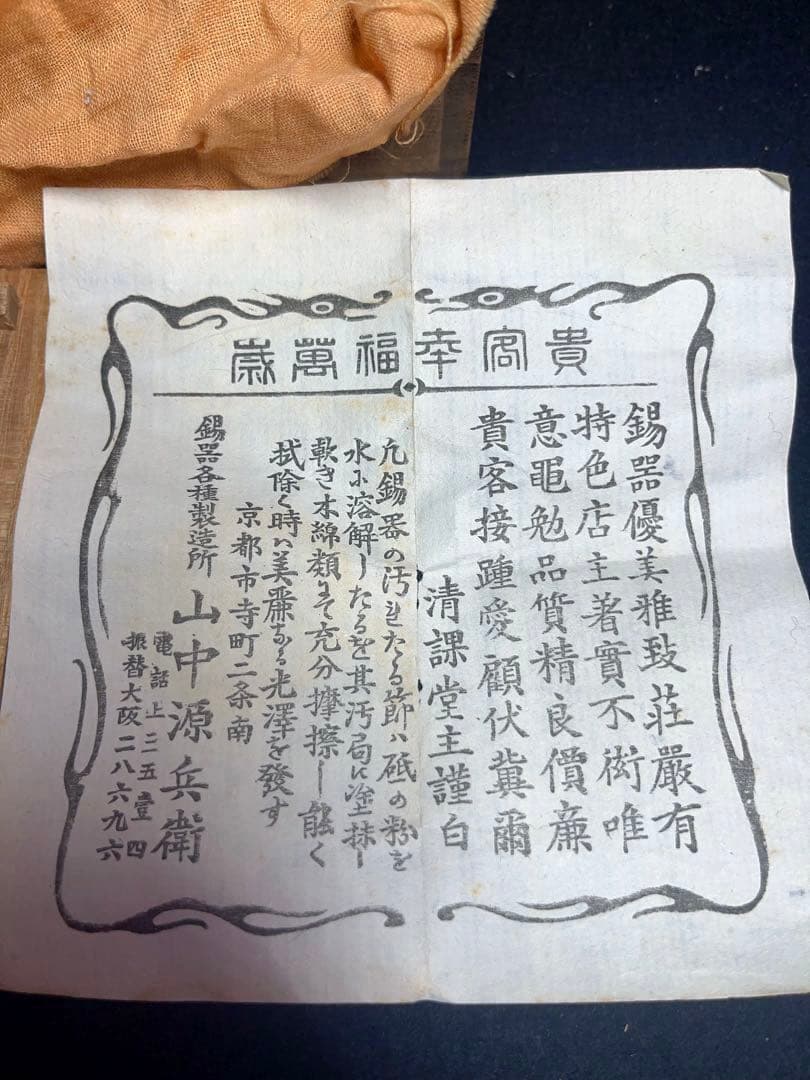 貴客幸福萬歳
錫器優美雅致莊嚴有
特色店主著實不衒唯
意黽勉品質精良價廉
貴客接踵愛顧伏冀爾
清課堂主謹白
凢錫器の汚れたる節ハ砥の粉を
水に溶解したるを其汚局に塗抹し
軟き木綿類にて充分摩擦し能く
拭除く時ハ美麗なる光澤を發す
京都市寺町二条南
錫器各種製造所 山中源兵衛
電話上二五壹四
振替大阪二八六九六